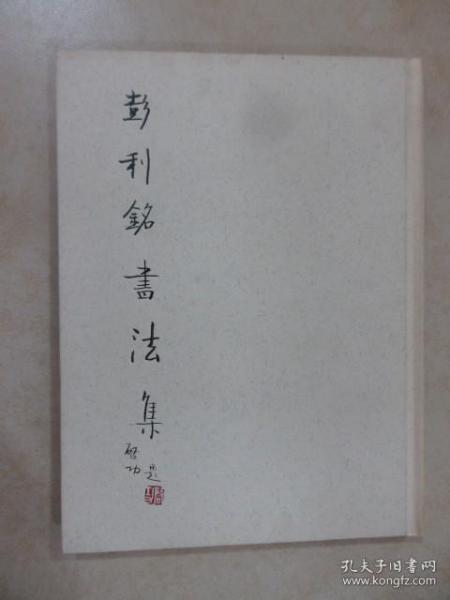 彭利銘書法集
啓功
是
孔夫子旧书网
www.kongfz.com